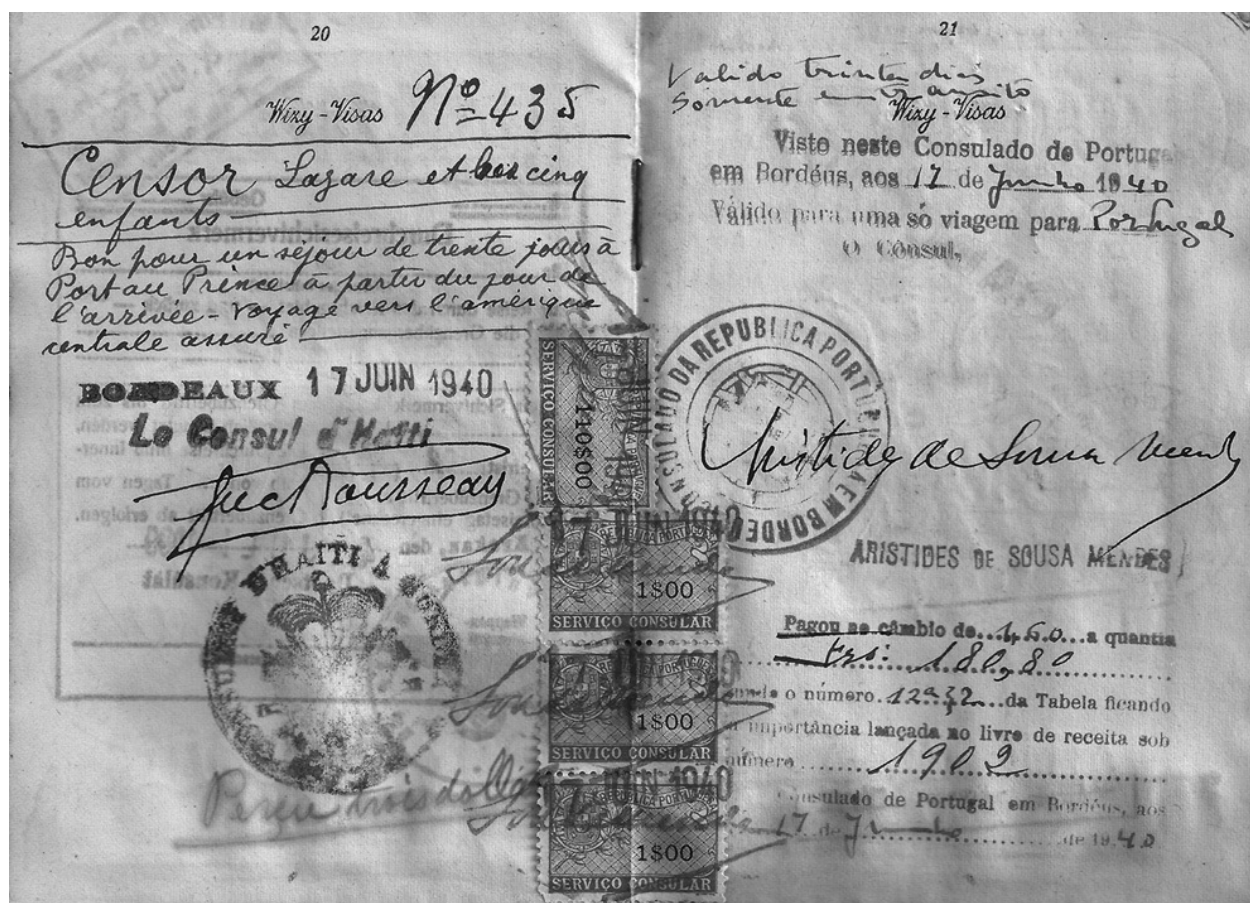 20
Wizy-Visas Nº 435
Censor Lazare et ses cinq
enfants
Bon pour un séjour de trente jours à
Port au Prince à partir du jour de
l'arrivée - Voyage vers l'amérique
centrale assuré
BORDEAUX 17 JUIN 1940
Le Consul d'Haïti
D'HAITI A
Perçu trois dollars
SERVIÇO CONSULAR
110$00
17 JUIN 1940
1$00
SERVIÇO CONSULAR
17 JUIN 1940
1$00
SERVIÇO CONSULAR
17 JUIN 1940
1$00
SERVIÇO CONSULAR
21
Valido trinta dias
Somente em transito
Wizy-Visas
Visto neste Consulado de Portugal
em Bordéus, aos 17 de Junho 1940
Válido para uma só viagem para Portugal
O Cônsul,
CONSULADO DA REPUBLICA PORTUGUESA EM BORDEUS
Aristides de Sousa Mendes
ARISTIDES DE SOUSA MENDES
Pagou ao câmbio de...4,60...a quantia
Frs: 180,80
o número..12 a 32..da Tabela ficando
a importância lançada no livro de receita sob
número 1902
Consulado de Portugal em Bordéus, aos
17 de Junho de 1940